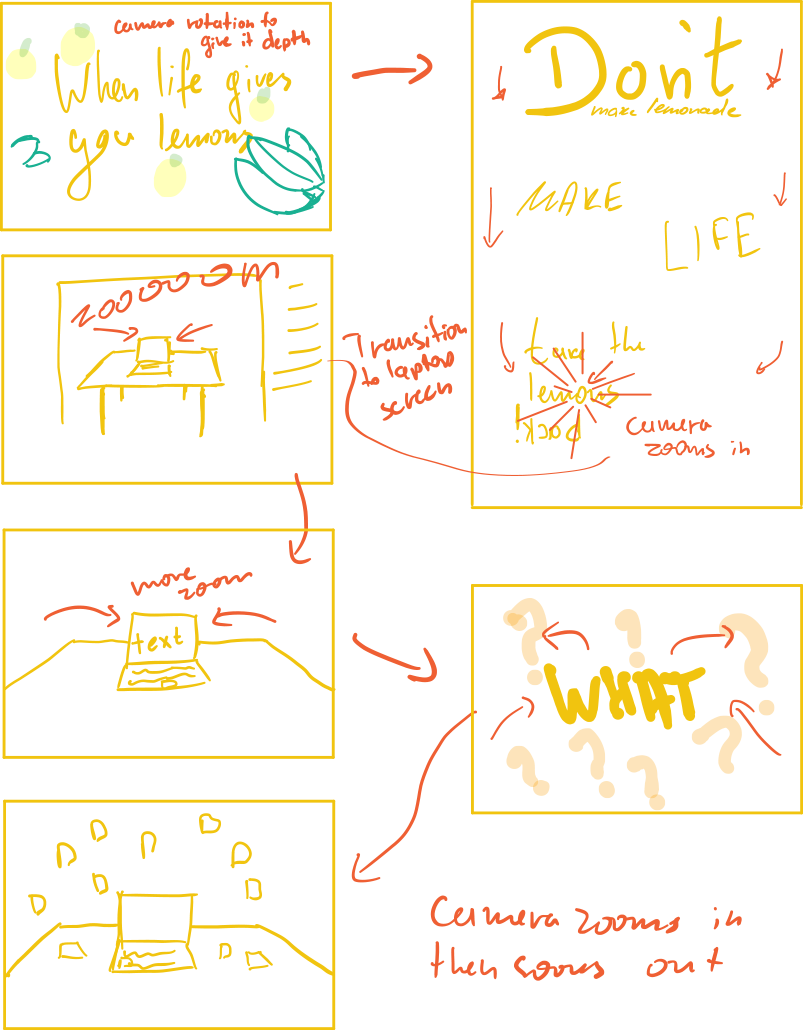 camera rotation to
give it depth
When life gives
you lemons
Don't
make lemonade
MAKE
LIFE
take the
lemons
back!
camera
zooms in
zooooom
Transition
to laptop
screen
more
zoom
text
WHAT
? ? ?
? ? ? ?
Camera zooms in
then zooms out